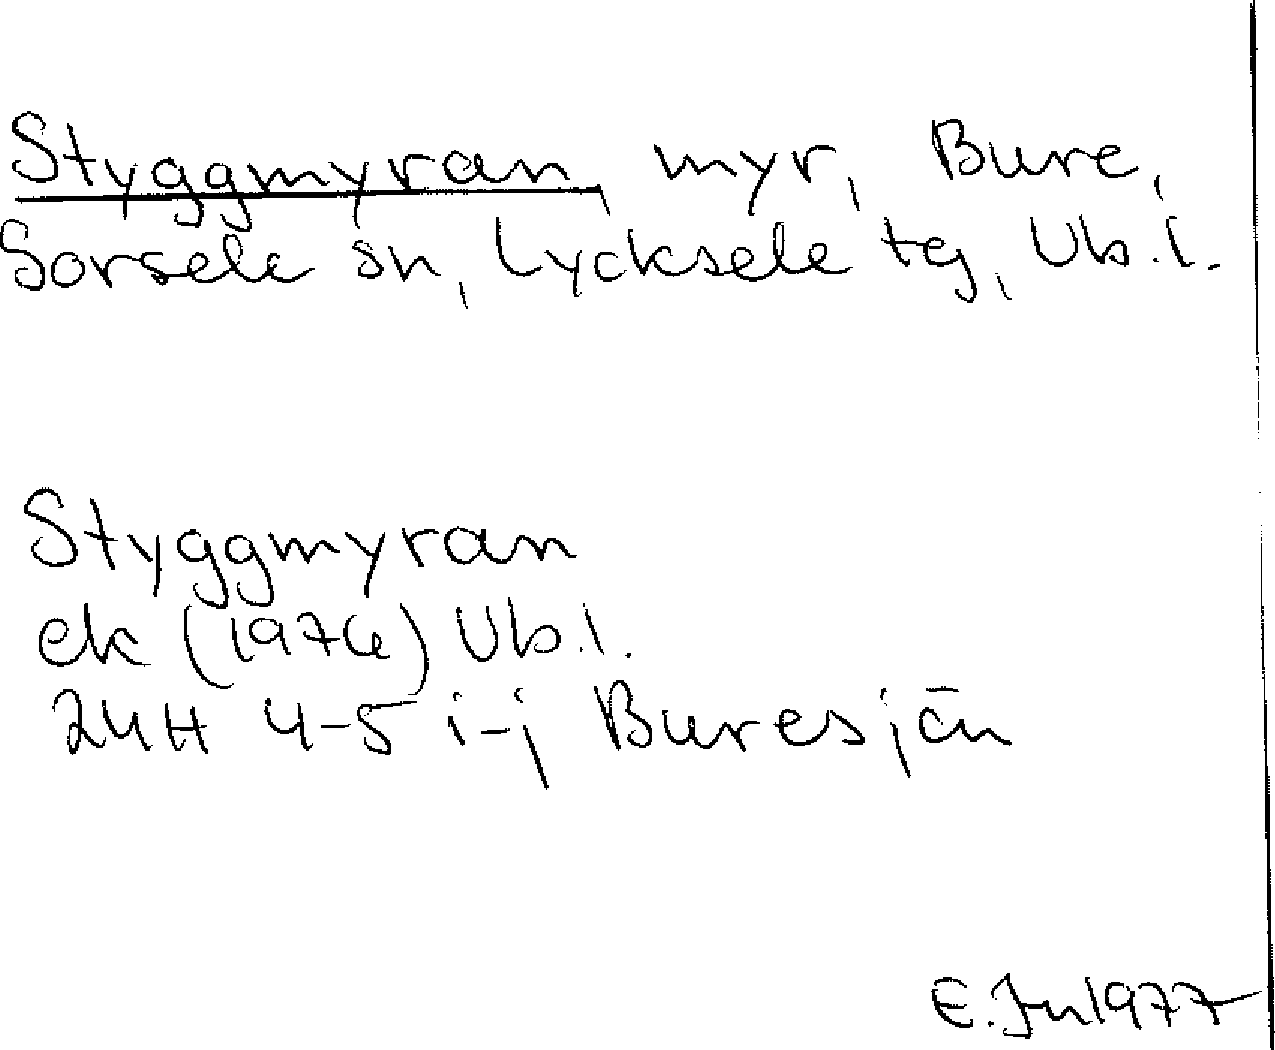 Styggmyran, myr, Bure,
Sorsele sn, Lycksele tg, Vb.l.
Styggmyran
ek (1976) Vb.l.
24H 4-5 i-j Buresjön
E.Jn 1977